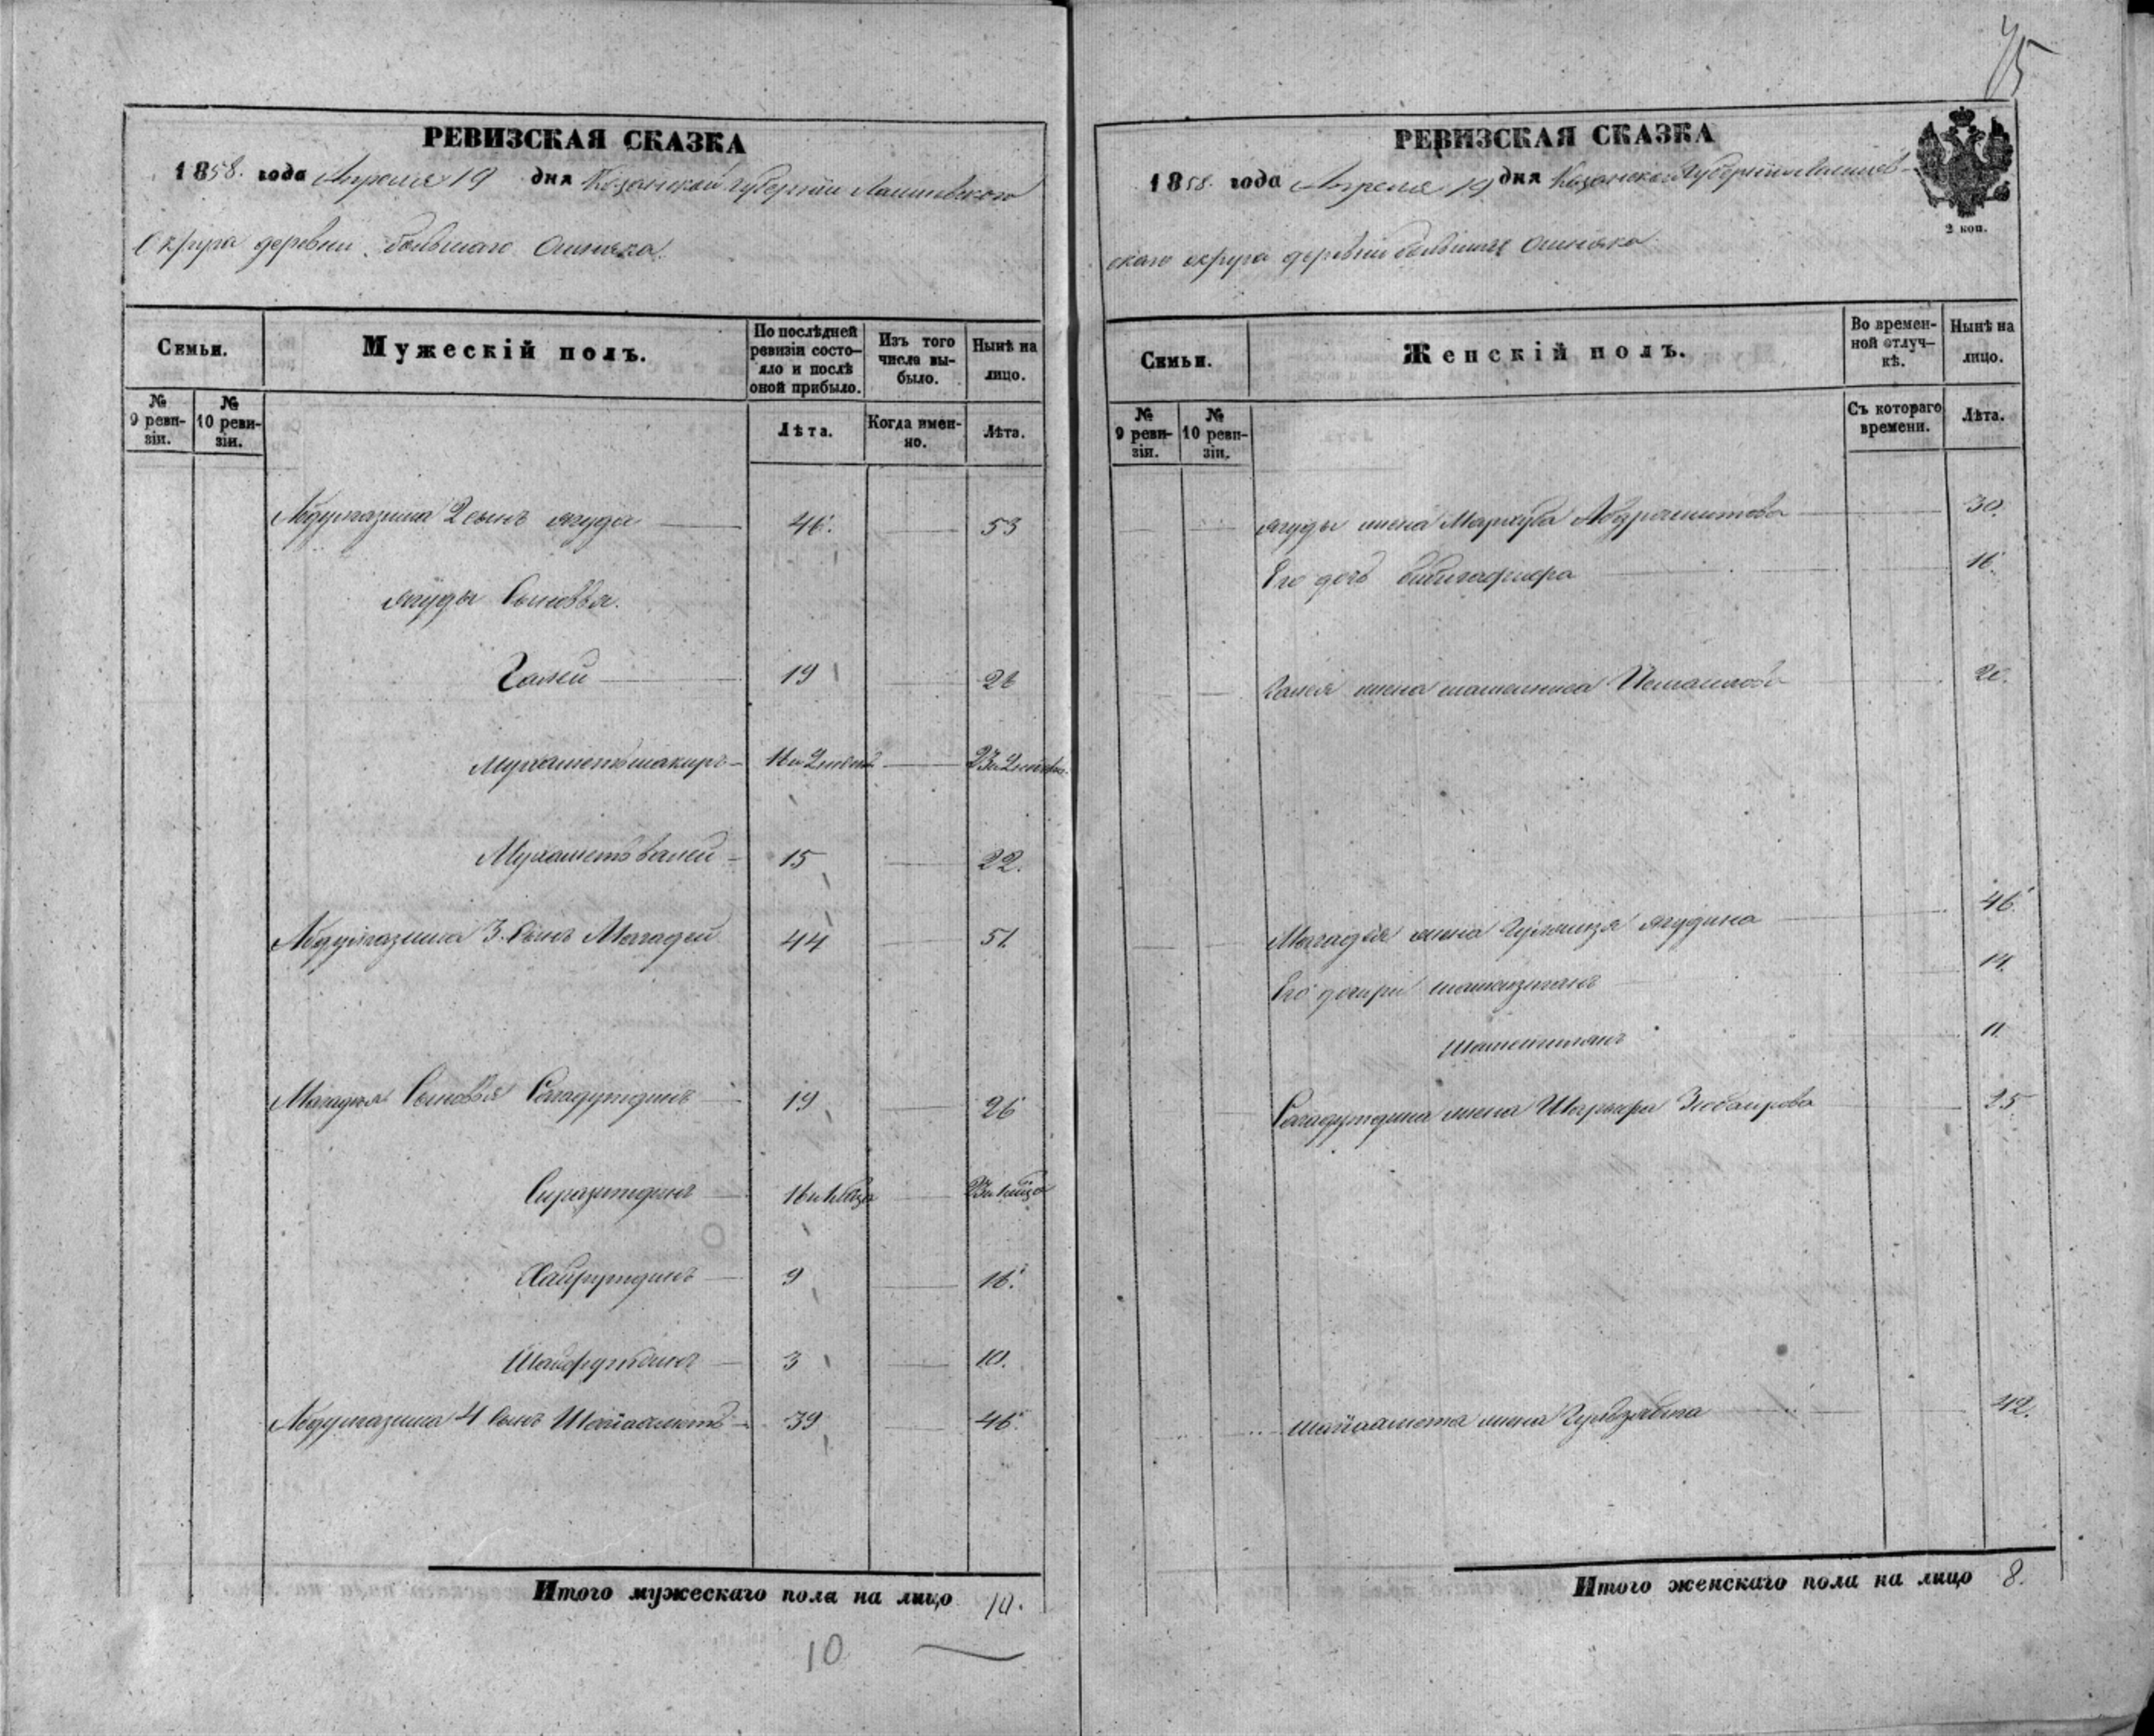 75
РЕВИЗСКАЯ СКАЗКА
1858. года Апреля 19 дня Казанской губернии Лаишевскаго
Округа деревни большаго Ошняка.
Семьи.
Мужескій полъ.
По послѣдней ревизіи состояло и послѣ оной прибыло.
Изъ того числа выбыло.
Нынѣ на лицо.
№ 9 ревизіи.
№ 10 ревизіи.
Лѣта.
Когда именно.
Лѣта.
Абдулгазиза 2 сынъ Ягуда 46. 53
Ягуды Сыновья.
Галей 19 26
Мухаметьшакиръ 16 и 23 и
Мухаметьвалей 15 22.
Абдулгазиза 3. сынъ Магадей 44 51.
Магадея Сыновья Сагадутдинъ 19 26
Сиразитдинъ 16 и 23 и
Хайрутдинъ 9 16.
Шайфутдинъ 3 10.
Абдулгазиза 4 сынъ Шайаметь 39 46.
Итого мужескаго пола на лицо 10.
10
РЕВИЗСКАЯ СКАЗКА
1858. года Апреля 19 дня Казанской Губернии Лаишев-
скаго округа деревни большаго Ошняка
2 коп.
Семьи.
Женскій полъ.
Во временной отлучкѣ.
Нынѣ на лицо.
№ 9 ревизіи.
№ 10 ревизіи.
Съ котораго времени.
Лѣта.
Ягуды жена Мархуба Абдрашитова 30.
Его дочь 16.
Галея жена 26.
Магадѣя жена Ягудина 46.
Его дочери 14.
11.
Сагадутдина жена Зюбаирова 25.
Шайамета жена 42.
Итого женскаго пола на лицо 8.